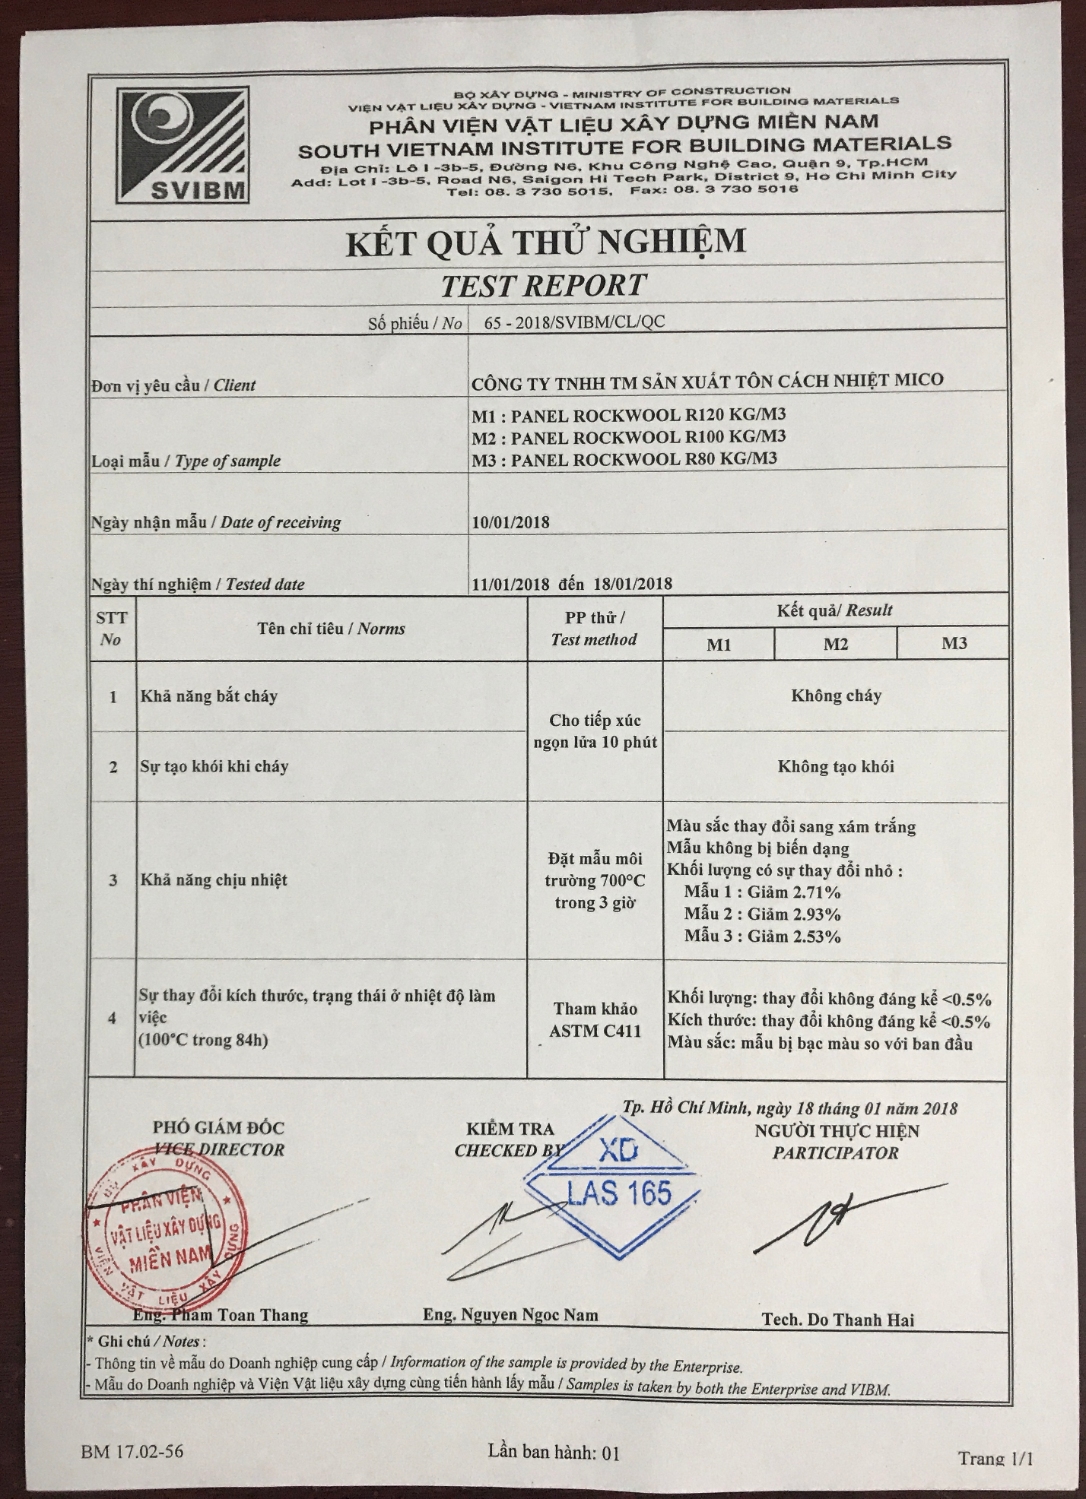 SVIBM
BỘ XÂY DỰNG - MINISTRY OF CONSTRUCTION
VIỆN VẬT LIỆU XÂY DỰNG - VIETNAM INSTITUTE FOR BUILDING MATERIALS
PHÂN VIỆN VẬT LIỆU XÂY DỰNG MIỀN NAM
SOUTH VIETNAM INSTITUTE FOR BUILDING MATERIALS
Địa Chỉ: Lô I -3b-5, Đường N6, Khu Công Nghệ Cao, Quận 9, Tp.HCM
Add: Lot I -3b-5, Road N6, Saigon Hi Tech Park, District 9, Ho Chi Minh City
Tel: 08. 3 730 5015, Fax: 08. 3 730 5016
KẾT QUẢ THỬ NGHIỆM
TEST REPORT
Số phiếu / No 65 - 2018/SVIBM/CL/QC
Đơn vị yêu cầu / Client CÔNG TY TNHH TM SẢN XUẤT TÔN CÁCH NHIỆT MICO
M1 : PANEL ROCKWOOL R120 KG/M3
M2 : PANEL ROCKWOOL R100 KG/M3
Loại mẫu / Type of sample M3 : PANEL ROCKWOOL R80 KG/M3
Ngày nhận mẫu / Date of receiving 10/01/2018
Ngày thí nghiệm / Tested date 11/01/2018 đến 18/01/2018
STT
No
Tên chỉ tiêu / Norms
PP thử /
Test method
Kết quả/ Result
M1 M2 M3
1 Khả năng bắt cháy
Cho tiếp xúc
ngọn lửa 10 phút
Không cháy
2 Sự tạo khói khi cháy
Không tạo khói
3 Khả năng chịu nhiệt
Đặt mẫu môi
trường 700°C
trong 3 giờ
Màu sắc thay đổi sang xám trắng
Mẫu không bị biến dạng
Khối lượng có sự thay đổi nhỏ :
Mẫu 1 : Giảm 2.71%
Mẫu 2 : Giảm 2.93%
Mẫu 3 : Giảm 2.53%
4
Sự thay đổi kích thước, trạng thái ở nhiệt độ làm
việc
(100°C trong 84h)
Tham khảo
ASTM C411
Khối lượng: thay đổi không đáng kể <0.5%
Kích thước: thay đổi không đáng kể <0.5%
Màu sắc: mẫu bị bạc màu so với ban đầu
Tp. Hồ Chí Minh, ngày 18 tháng 01 năm 2018
PHÓ GIÁM ĐỐC
VICE DIRECTOR
KIỂM TRA
CHECKED BY
NGƯỜI THỰC HIỆN
PARTICIPATOR
BỘ XÂY DỰNG
PHÂN VIỆN
VẬT LIỆU XÂY DỰNG
MIỀN NAM
VIỆN VẬT LIỆU XÂY DỰNG
XD
LAS 165
Eng. Pham Toan Thang
Eng. Nguyen Ngoc Nam
Tech. Do Thanh Hai
* Ghi chú / Notes :
- Thông tin về mẫu do Doanh nghiệp cung cấp / Information of the sample is provided by the Enterprise.
- Mẫu do Doanh nghiệp và Viện Vật liệu xây dựng cùng tiến hành lấy mẫu / Samples is taken by both the Enterprise and VIBM.
BM 17.02-56 Lần ban hành: 01 Trang 1/1